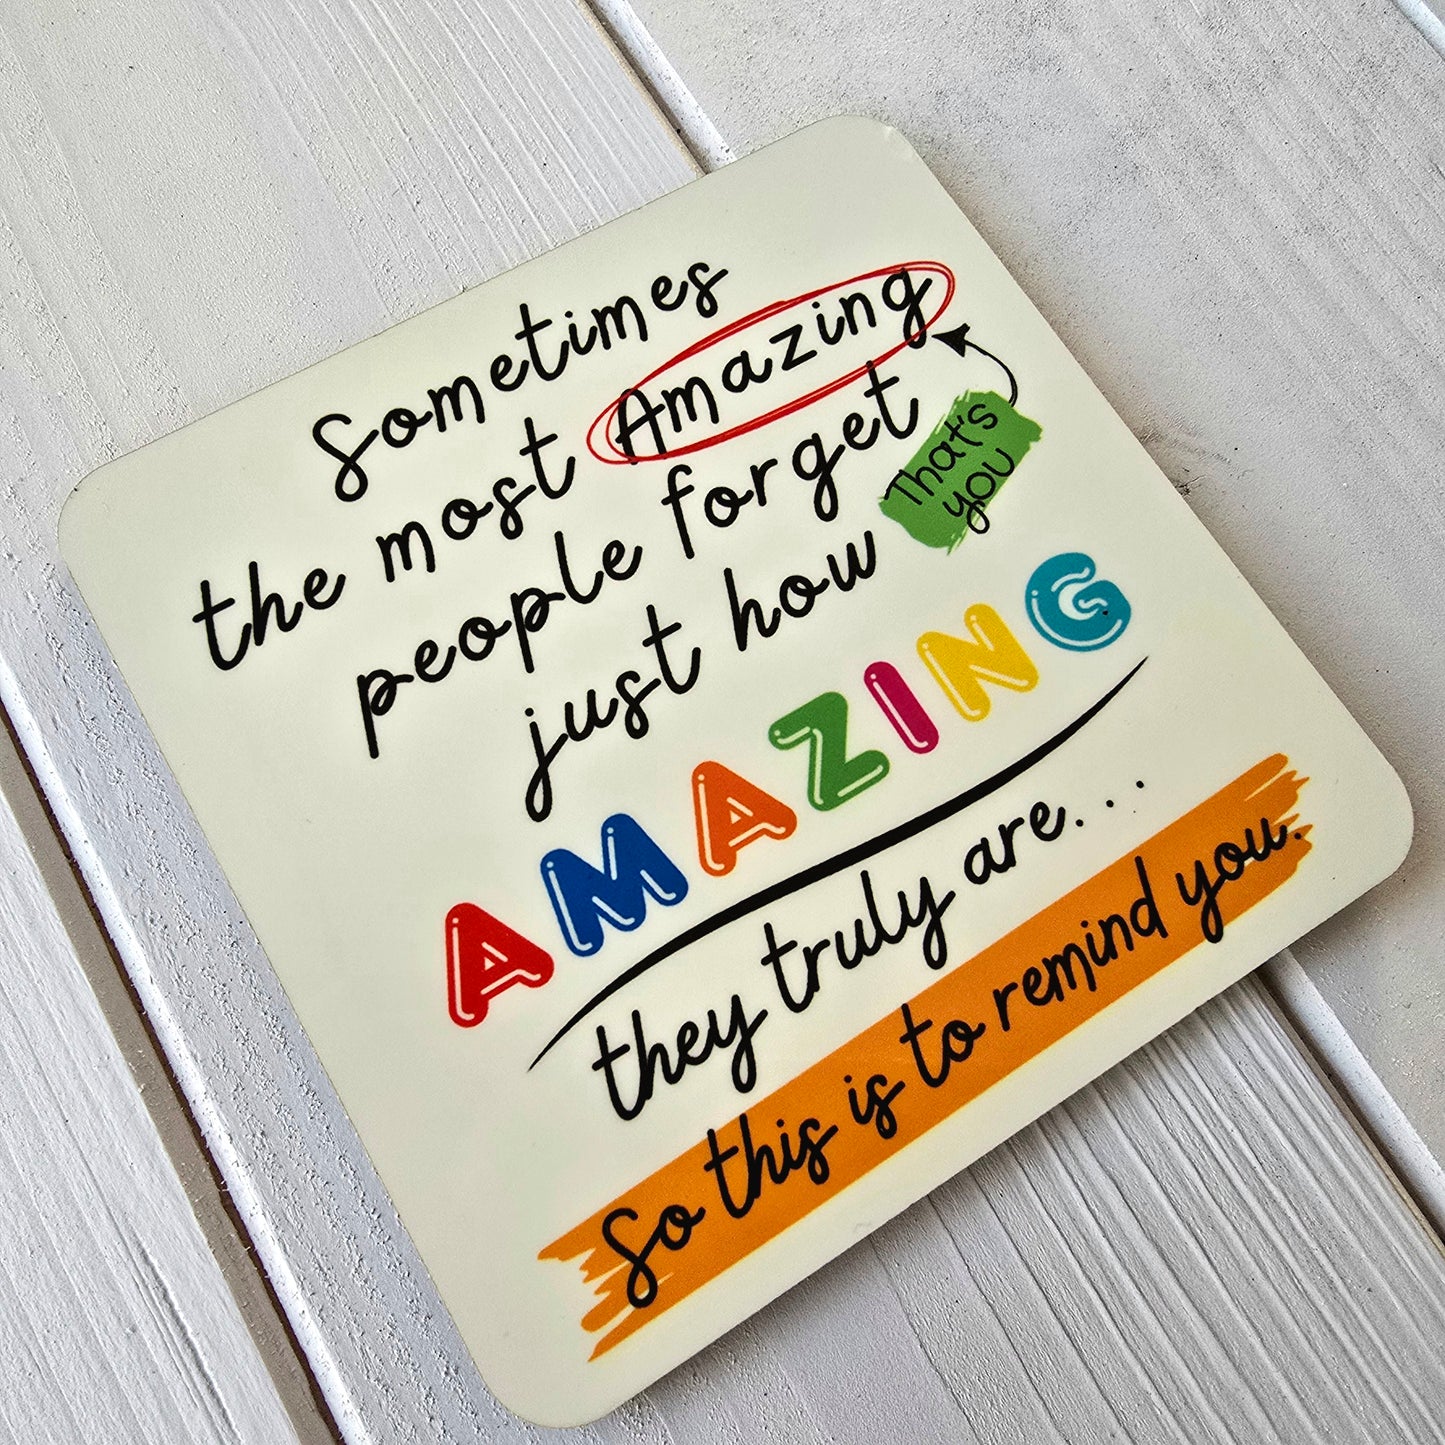 Sometimes
the most Amazing
people forget
That's
you
just how
AMAZING
they truly are...
So this is to remind you.